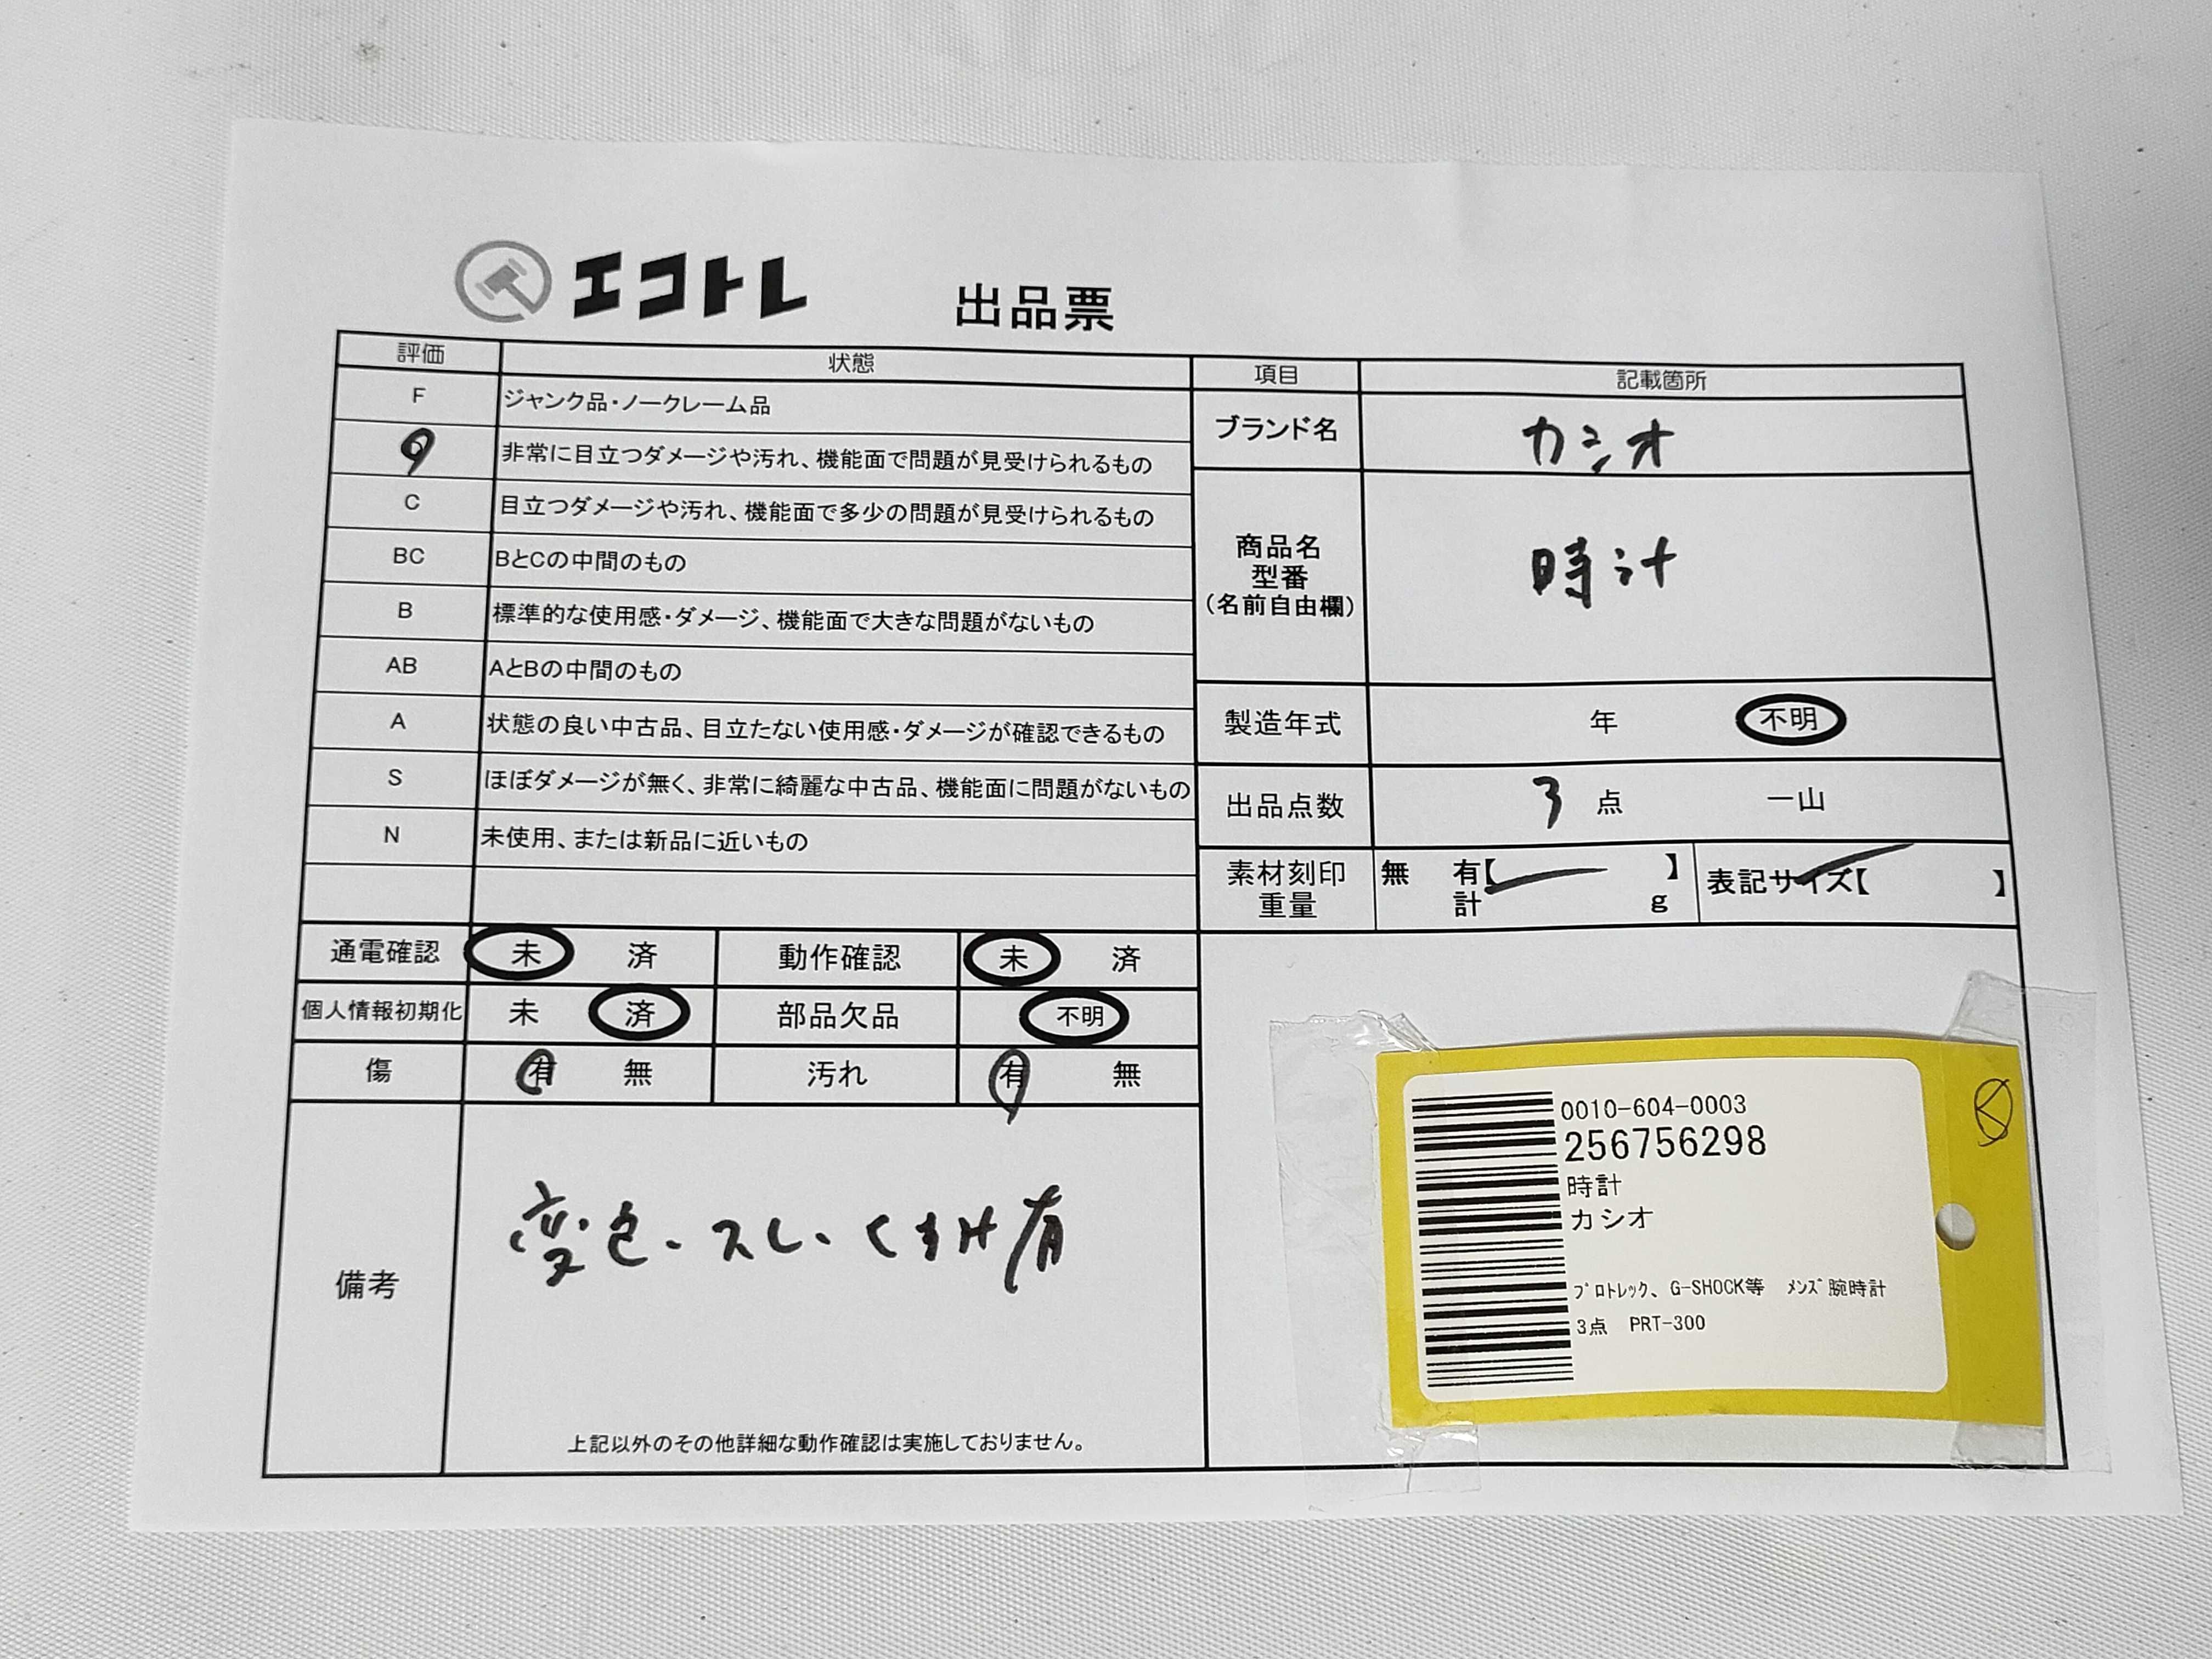 エコトレ 出品票
評価 状態
F ジャンク品・ノークレーム品
非常に目立つダメージや汚れ、機能面で問題が見受けられるもの
C 目立つダメージや汚れ、機能面で多少の問題が見受けられるもの
BC BとCの中間のもの
B 標準的な使用感・ダメージ、機能面で大きな問題がないもの
AB AとBの中間のもの
A 状態の良い中古品、目立たない使用感・ダメージが確認できるもの
S ほぼダメージが無く、非常に綺麗な中古品、機能面に問題がないもの
N 未使用、または新品に近いもの
項目 記載箇所
ブランド名 カシオ
商品名
型番
(名前自由欄)
時計
製造年式 年 不明
出品点数 3 点 一山
素材刻印 無 有【 】 表記サイズ【 】
重量 計 g
通電確認 未 済 動作確認 未 済
個人情報初期化 未 済 部品欠品 不明
傷 有 無 汚れ 有 無
備考
変色、スレ、くすみ有
上記以外のその他詳細な動作確認は実施しておりません。
0010-604-0003
256756298
時計
カシオ
ﾌﾟﾛﾄﾚｯｸ、G-SHOCK等 ﾒﾝｽﾞ腕時計
3点 PRT-300